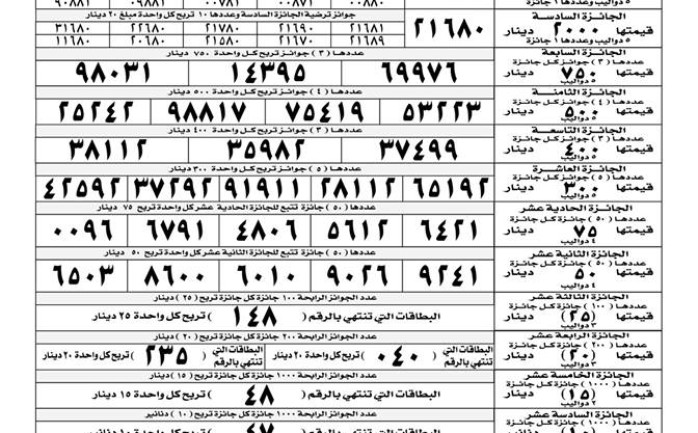 ٥ دواليب وعددها ١ جائزة
٩٠٨٨١ ٠٩٨٨١ ٠٠٧٨١ ٠٠٨٧١ ٠٠٨٨٠
الجائزة السادسة
قيمتها ٢٠٠٠ دينار
٥ دواليب وعددها ١ جائزة
٢١٦٨٠
جوائز ترضية الجائزة السادسة وعددها ١٠ تربح كل واحدة مبلغ ٢٠ دينار
٣١٦٨٠ ٢٢٦٨٠ ٢١٧٨٠ ٢١٦٩٠ ٢١٦٨١
١١٦٨٠ ٢٠٦٨٠ ٢١٥٨٠ ٢١٦٧٠ ٢١٦٨٩
الجائزة السابعة
عددها (٣) جوائز كل جائزة
قيمتها ٧٥٠ دينار
٥ دواليب
عددها (٣) جوائز تربح كل واحدة ٧٥٠ دينار
٩٨٠٣١ ١٤٣٩٥ ٦٩٩٧٦
الجائزة الثامنة
عددها (٤) جوائز كل جائزة
قيمتها ٥٠٠ دينار
٥ دواليب
عددها (٤) جوائز تربح كل واحدة ٥٠٠ دينار
٢٥٢٤٢ ٩٨٨١٧ ٧٥٤١٩ ٥٣٢٢٣
الجائزة التاسعة
عددها (٣) جوائز كل جائزة
قيمتها ٤٠٠ دينار
٥ دواليب
عددها (٣) جوائز تربح كل واحدة ٤٠٠ دينار
٣٨١١٢ ٣٥٩٨٢ ٣٧٤٩٩
الجائزة العاشرة
عددها (٥) جوائز كل جائزة
قيمتها ٣٠٠ دينار
٥ دواليب
عددها (٥) جوائز تربح كل واحدة ٣٠٠ دينار
٤٢٥٩٢ ٣٧٢٩٢ ٩١٩١١ ٢٨١١٢ ٦٥١٩٢
الجائزة الحادية عشر
عددها (٥٠) جائزة كل جائزة
قيمتها ٧٥ دينار
٤ دواليب
عددها (٥٠) جائزة تتبع للجائزة الحادية عشر كل واحدة تربح ٧٥ دينار
٠٠٩٦ ٦٧٩١ ٤٨٠٦ ٥٦١٢ ٦٤٢١
الجائزة الثانية عشر
عددها (٥٠) جائزة كل جائزة
قيمتها ٥٠ دينار
٤ دواليب
عددها (٥٠) جائزة تتبع للجائزة الثانية عشر كل واحدة تربح ٥٠ دينار
٦٥٠٣ ٨٦٠٠ ٦٠١٠ ٩٠٢٦ ٩٢٤١
الجائزة الثالثة عشر
عددها (١٠٠) جائزة كل جائزة
قيمتها (٢٥) دينار
٣ دواليب
عدد الجوائز الرابحة ١٠٠ جائزة كل جائزة تربح (٢٥) دينار
البطاقات التي تنتهي بالرقم ( ١٤٨ ) تربح كل واحدة ٢٥ دينار
الجائزة الرابعة عشر
عددها (٢٠٠) جائزة كل جائزة
قيمتها (٢٠) دينار
٣ دواليب
عدد الجوائز الرابحة ٢٠٠ جائزة كل جائزة تربح (٢٠) دينار
البطاقات التي تنتهي بالرقم ( ٠٤٠ ) تربح كل واحدة ٢٠ دينار
البطاقات التي تنتهي بالرقم ( ٢٣٥ ) تربح كل واحدة ٢٠ دينار
الجائزة الخامسة عشر
عددها (١٠٠٠) جائزة كل جائزة
قيمتها (١٥) دينار
٢ دواليب
عدد الجوائز الرابحة ١٠٠٠ جائزة كل جائزة تربح (١٥) دينار
البطاقات التي تنتهي بالرقم ( ٤٨ ) تربح كل واحدة ١٥ دينار
الجائزة السادسة عشر
عددها (١٠٠٠) جائزة كل جائزة
قيمتها (١٠) دينار
عدد الجوائز الرابحة ١٠٠٠ جائزة كل جائزة تربح (١٠) دنانير